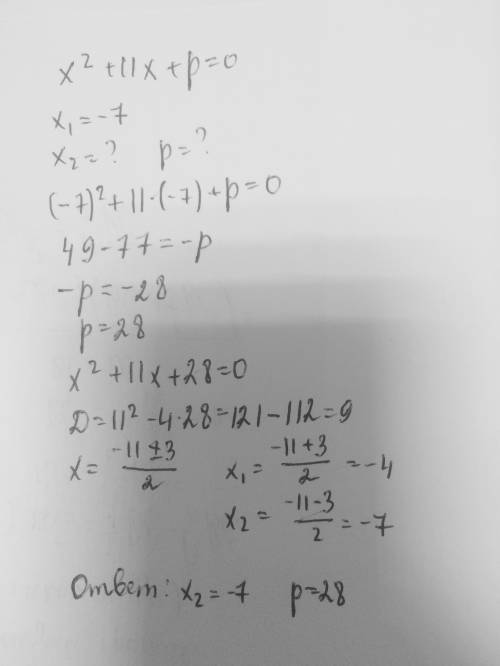 x² + 11x + p = 0
x₁ = -7
x₂ = ? p = ?
(-7)² + 11·(-7) + p = 0
49 - 77 = -p
-p = -28
p = 28
x² + 11x + 28 = 0
D = 11² - 4·28 = 121 - 112 = 9
x = (-11 ± 3)/2 x₁ = (-11 + 3)/2 = -4
x₂ = (-11 - 3)/2 = -7
Ответ: x₂ = -7 p = 28